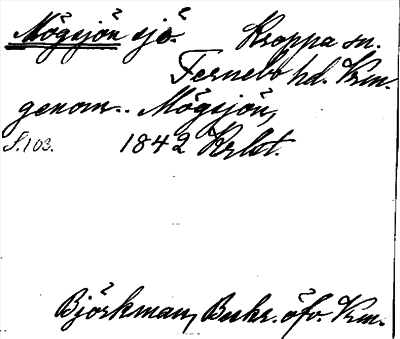 Mögsjön sjö. Kroppa sn.
Fernebo hd. Vrm.
genom.. Mögsjön,
S. 103. 1842 Krlst.
Björkman, Beskr. öfv. Vrm.